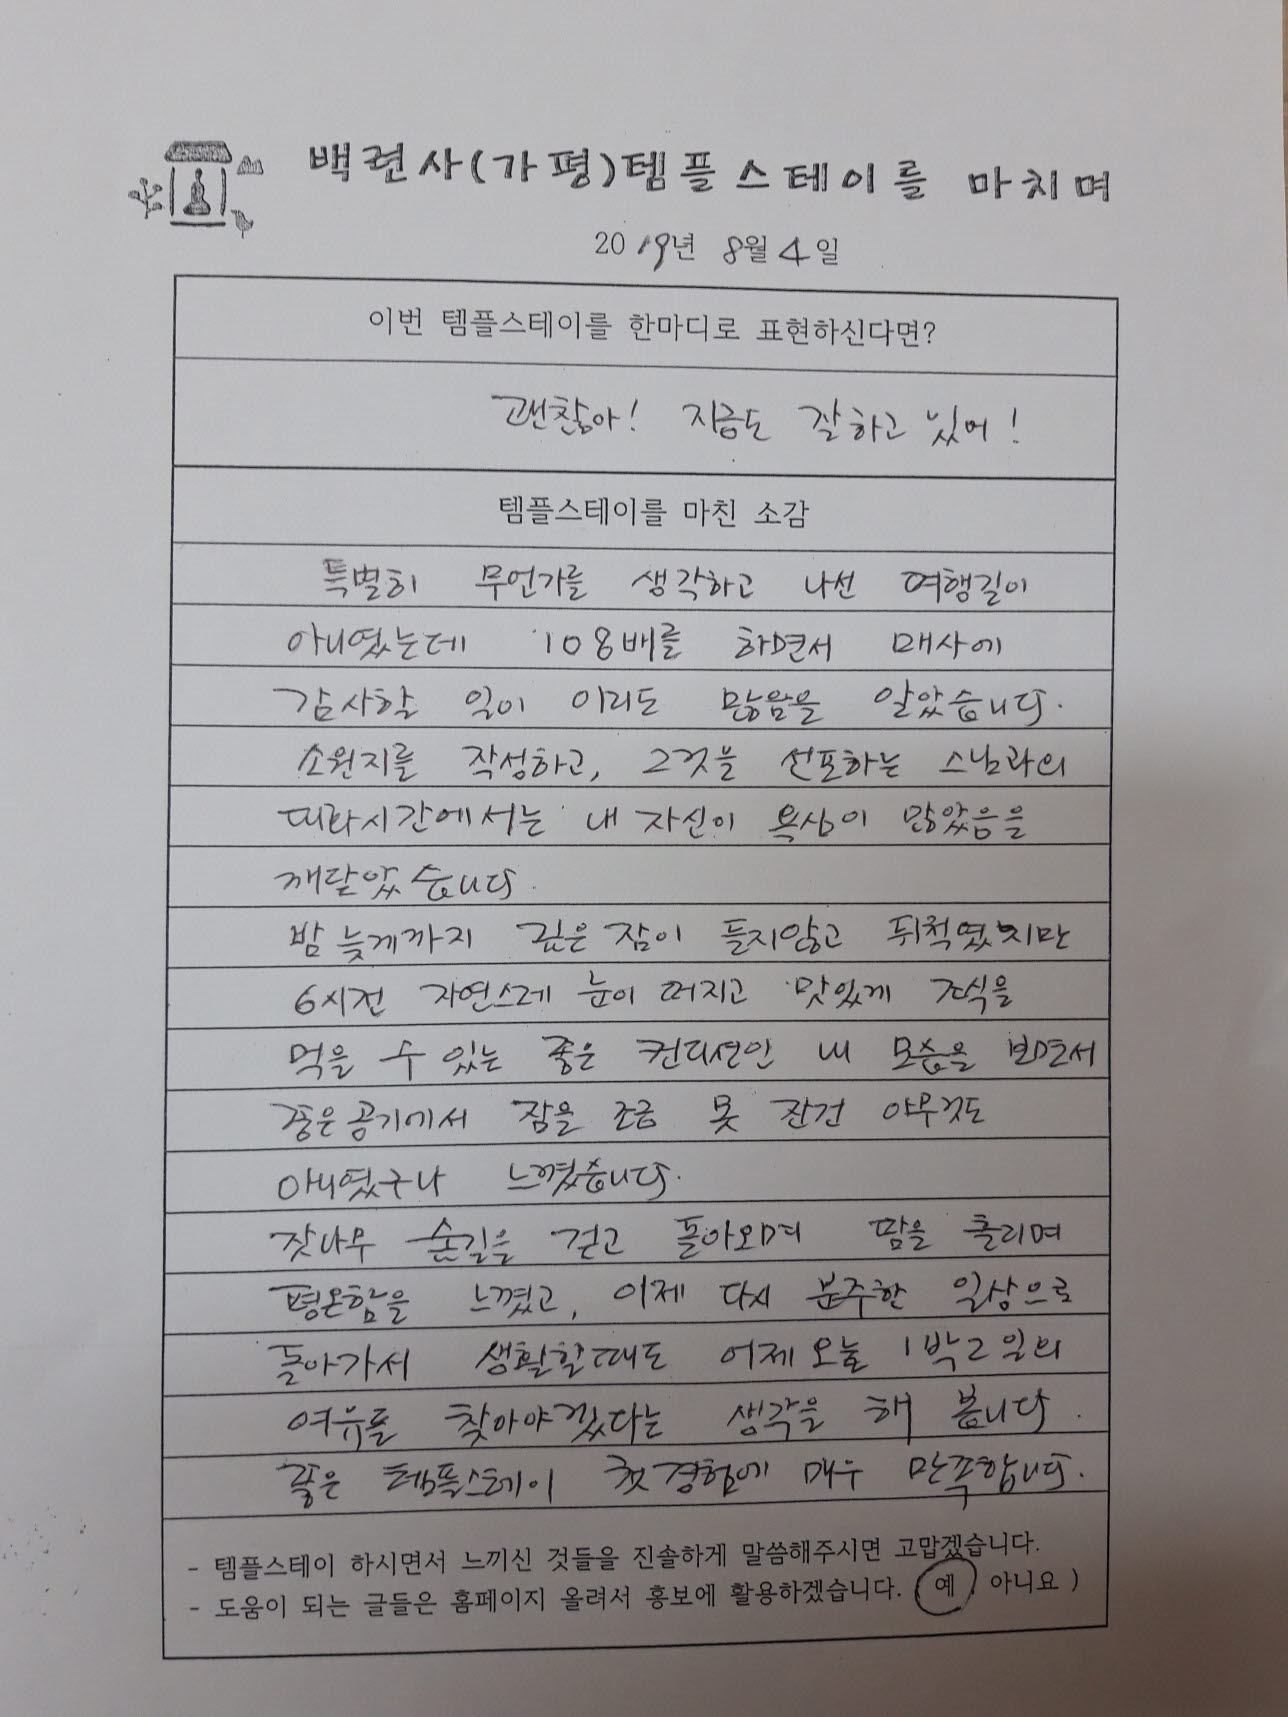 백련사(가평)템플스테이를 마치며
2019년 8월 4일
이번 템플스테이를 한마디로 표현하신다면?
괜찮아! 지금도 잘하고 있어!
템플스테이를 마친 소감
특별히 무언가를 생각하고 나선 여행길이
아니였는데 108배를 하면서 매사에
감사할 일이 이리도 많음을 알았습니다.
소원지를 작성하고, 그것을 선포하는 스님과의
따라시간에서는 내 자신이 욕심이 많았음을
깨달았습니다.
밤 늦게까지 깊은 잠이 들지않고 뒤척였지만
6시전 자연스레 눈이 떠지고 맛있게 조식을
먹을 수 있는 좋은 컨디션인 내 모습을 보면서
좋은공기에서 잠을 조금 못 잔건 아무것도
아니였구나 느꼈습니다.
잣나무 숲길을 걷고 돌아오며 땀을 흘리며
평온함을 느꼈고, 이제 다시 분주한 일상으로
돌아가서 생활할때도 어제오늘 1박2일의
여유를 찾아야겠다는 생각을 해 봅니다.
좋은 템플스테이 첫경험에 매우 만족합니다.
- 템플스테이 하시면서 느끼신 것들을 진솔하게 말씀해주시면 고맙겠습니다.
- 도움이 되는 글들은 홈페이지 올려서 홍보에 활용하겠습니다. (예 아니요 )